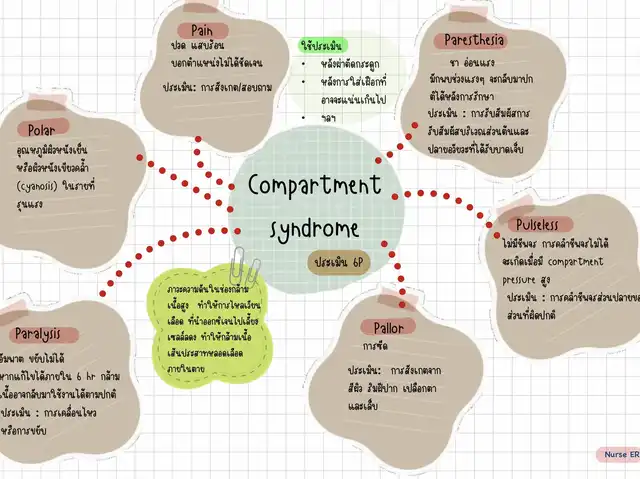 Pain
ปวด แสบร้อน
บอกตำแหน่งไม่ได้ชัดเจน
ประเมิน: การสังเกต/สอบถาม
ใช้ประเมิน
• หลังผ่าตัดกระดูก
• หลังการใส่เฝือกที่
อาจจะแน่นเกินไป
• ฯลฯ
Paresthesia
ชา อ่อนแรง
มักพบช่วงแรงๆ จะกลับมาปก
ติได้หลังการรักษา
ประเมิน : การรับสัมผัสการ
รับสัมผัสบริเวณส่วนต้นและ
ปลายอวัยวะที่ได้รับบาดเจ็บ
Polar
อุณหภูมิผิวหนังเย็น
หรือผิวหนังเขียวคล้ำ
(cyanosis) ในรายที่
รุนแรง
Compartment
syndrome
ประเมิน 6P
Pulseless
ไม่มีชีพจร การคลำชีพจรไม่ได้
จะเกิดเมื่อมี compartment
pressure สูง
ประเมิน : การคลำชีพจรส่วนปลายของ
ส่วนที่ผิดปกติ
ภาวะความดันในช่องกล้าม
เนื้อสูง ทำให้การไหลเวียน
เลือด ที่นำออกซิเจนไปเลี้ยง
เซลล์ลดลง ทำให้กล้ามเนื้อ
เส้นประสาทหลอดเลือด
ภายในตาย
Paralysis
อัมพาต ขยับไม่ได้
หากแก้ไขได้ภายใน 6 hr กล้าม
เนื้ออาจกลับมาใช้งานได้ตามปกติ
ประเมิน : การเคลื่อนไหว
หรือการขยับ
Pallor
การซีด
ประเมิน: การสังเกตจาก
สีผิว ริมฝีปาก เปลือกตา
และเล็บ
Nurse ER